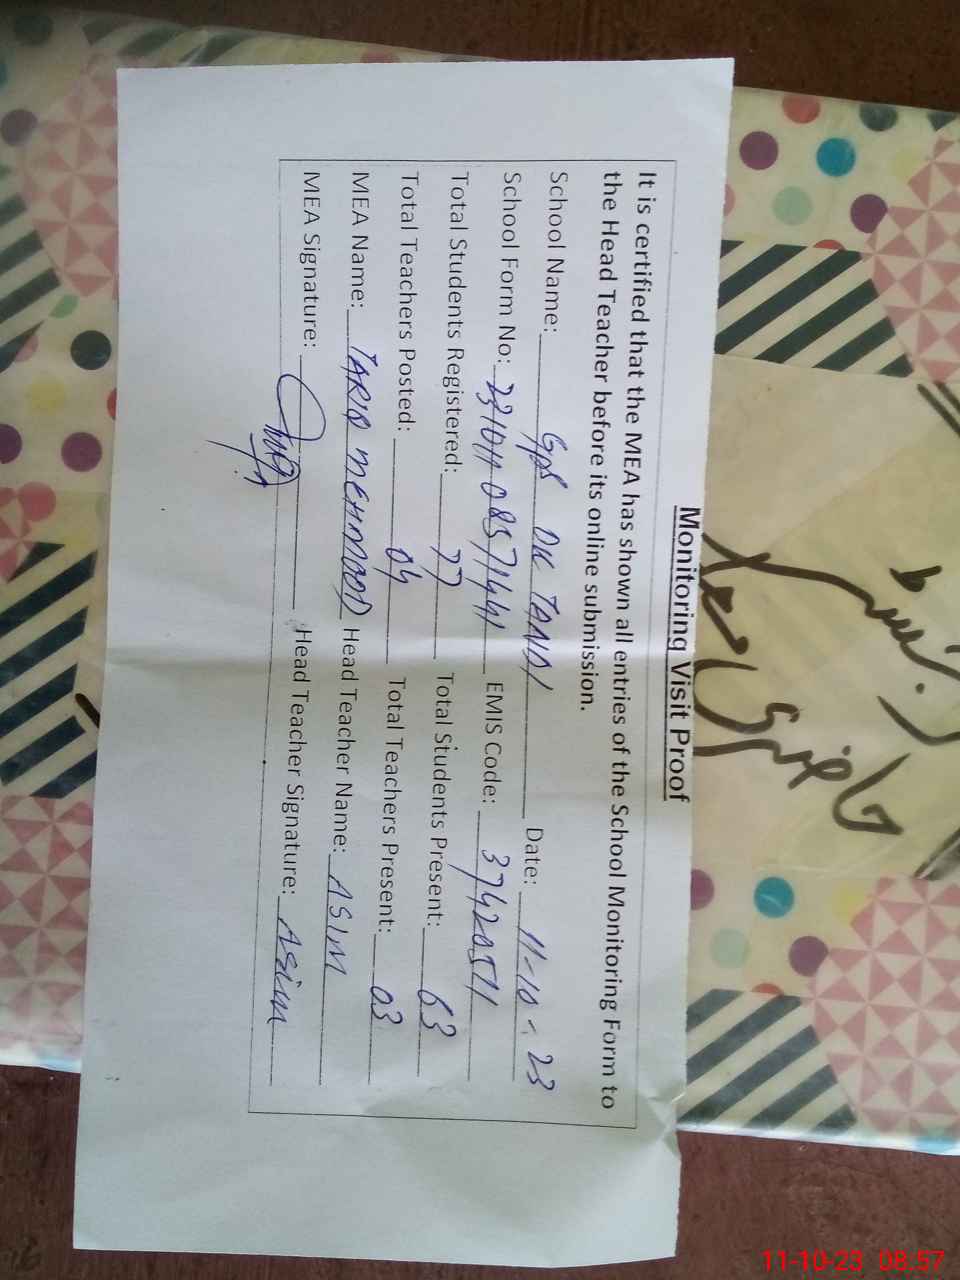 Monitoring Visit Proof
It is certified that the MEA has shown all entries of the School Monitoring Form to
the Head Teacher before its online submission.
School Name: GPS DK TANDI Date: 11-10-23
School Form No: EMIS Code: 37420511
Total Students Registered: 77 Total Students Present: 63
Total Teachers Posted: 04 Total Teachers Present: 03
MEA Name: TARIQ MEHMOOD Head Teacher Name: ASIM
MEA Signature: Head Teacher Signature: Asim
رجسٹر
حاضری
11-10-23 08:57